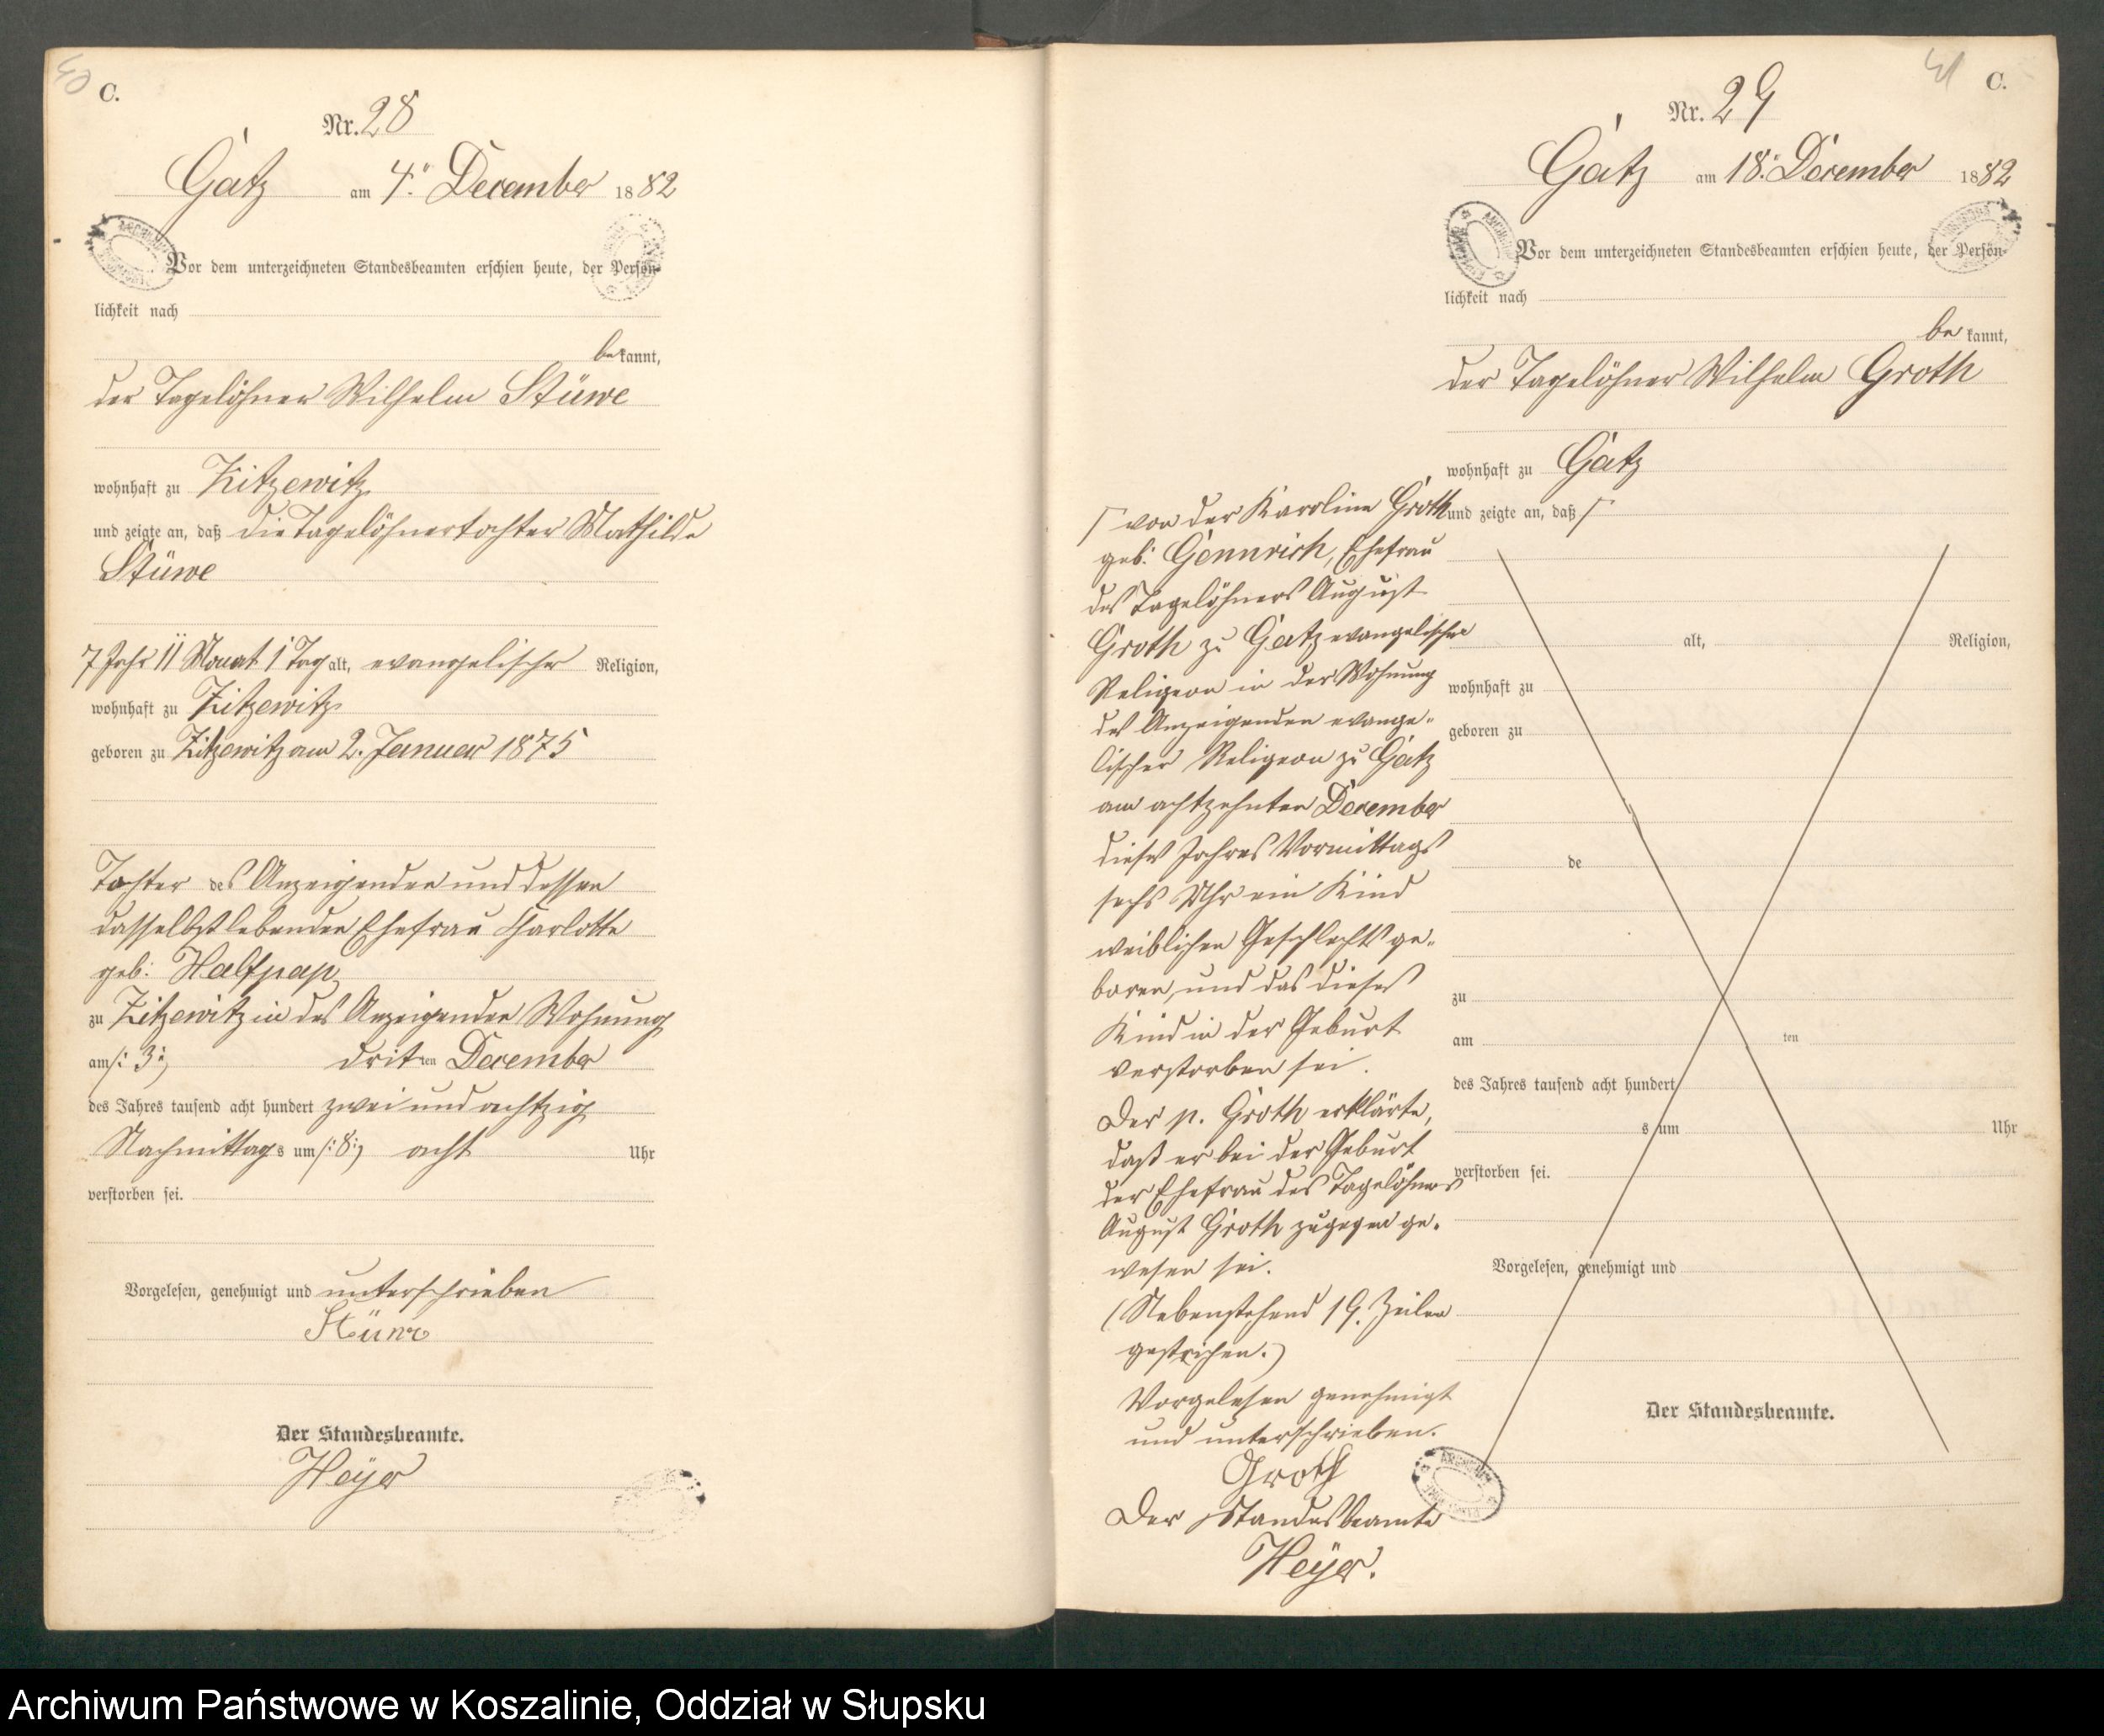 40
C.
Nr. 28
Gatz am 4ten December 1882
Vor dem unterzeichneten Standesbeamten erschien heute, der Persön-
lichkeit nach
be kannt,
der Tagelöhner Wilhelm Stüwe
wohnhaft zu Zitzewitz
und zeigte an, daß die Tagelöhnertochter Mathilde
Stüwe
7 Jahr 11 Monat 1 Tag alt, evangelischer Religion,
wohnhaft zu Zitzewitz
geboren zu Zitzewitz am 2. Januar 1875
Tochter des Anzeigenden und dessen
dasselbst lebenden Ehefrau Charlotte
geb: Halfpap
zu Zitzewitz in des Anzeigenden Wohnung
am /: 3 :/ dritten December
des Jahres tausend acht hundert zwei und achtzig
Nachmittags um /: 8 :/ acht Uhr
verstorben sei.
Vorgelesen, genehmigt und unterschrieben
Stüwe
Der Standesbeamte.
Heyer
41
C.
Nr. 29
Gatz am 18ten December 1882
Vor dem unterzeichneten Standesbeamten erschien heute, der Persön-
lichkeit nach
be kannt,
der Tagelöhner Wilhelm Groth
wohnhaft zu Gatz
und zeigte an, daß Γ
alt, Religion,
wohnhaft zu
geboren zu
de
zu
am ten
des Jahres tausend acht hundert
s um Uhr
verstorben sei.
Vorgelesen, genehmigt und
Der Standesbeamte.
Γ von der Karoline Groth
geb: Gennrich, Ehefrau
des Tagelöhners August
Groth zu Gatz evangelischer
Religion in der Wohnung
des Anzeigenden evange-
lischer Religion zu Gatz
am achtzehnten December
dieses Jahres Vormittags
sechs Uhr ein Kind
weiblichen Geschlechts ge-
boren, und das dieses
Kind in der Geburt
verstorben sei.
Der p. Groth erklärte,
daß er bei der Geburt
der Ehefrau des Tagelöhners
August Groth zugegen ge-
wesen sei.
(Nebenstehend 19. Zeilen
gestrichen.)
Vorgelesen genehmigt
und unterschrieben.
Groth
Der Standesbeamte
Heyer.
Archiwum Państwowe w Koszalinie, Oddział w Słupsku